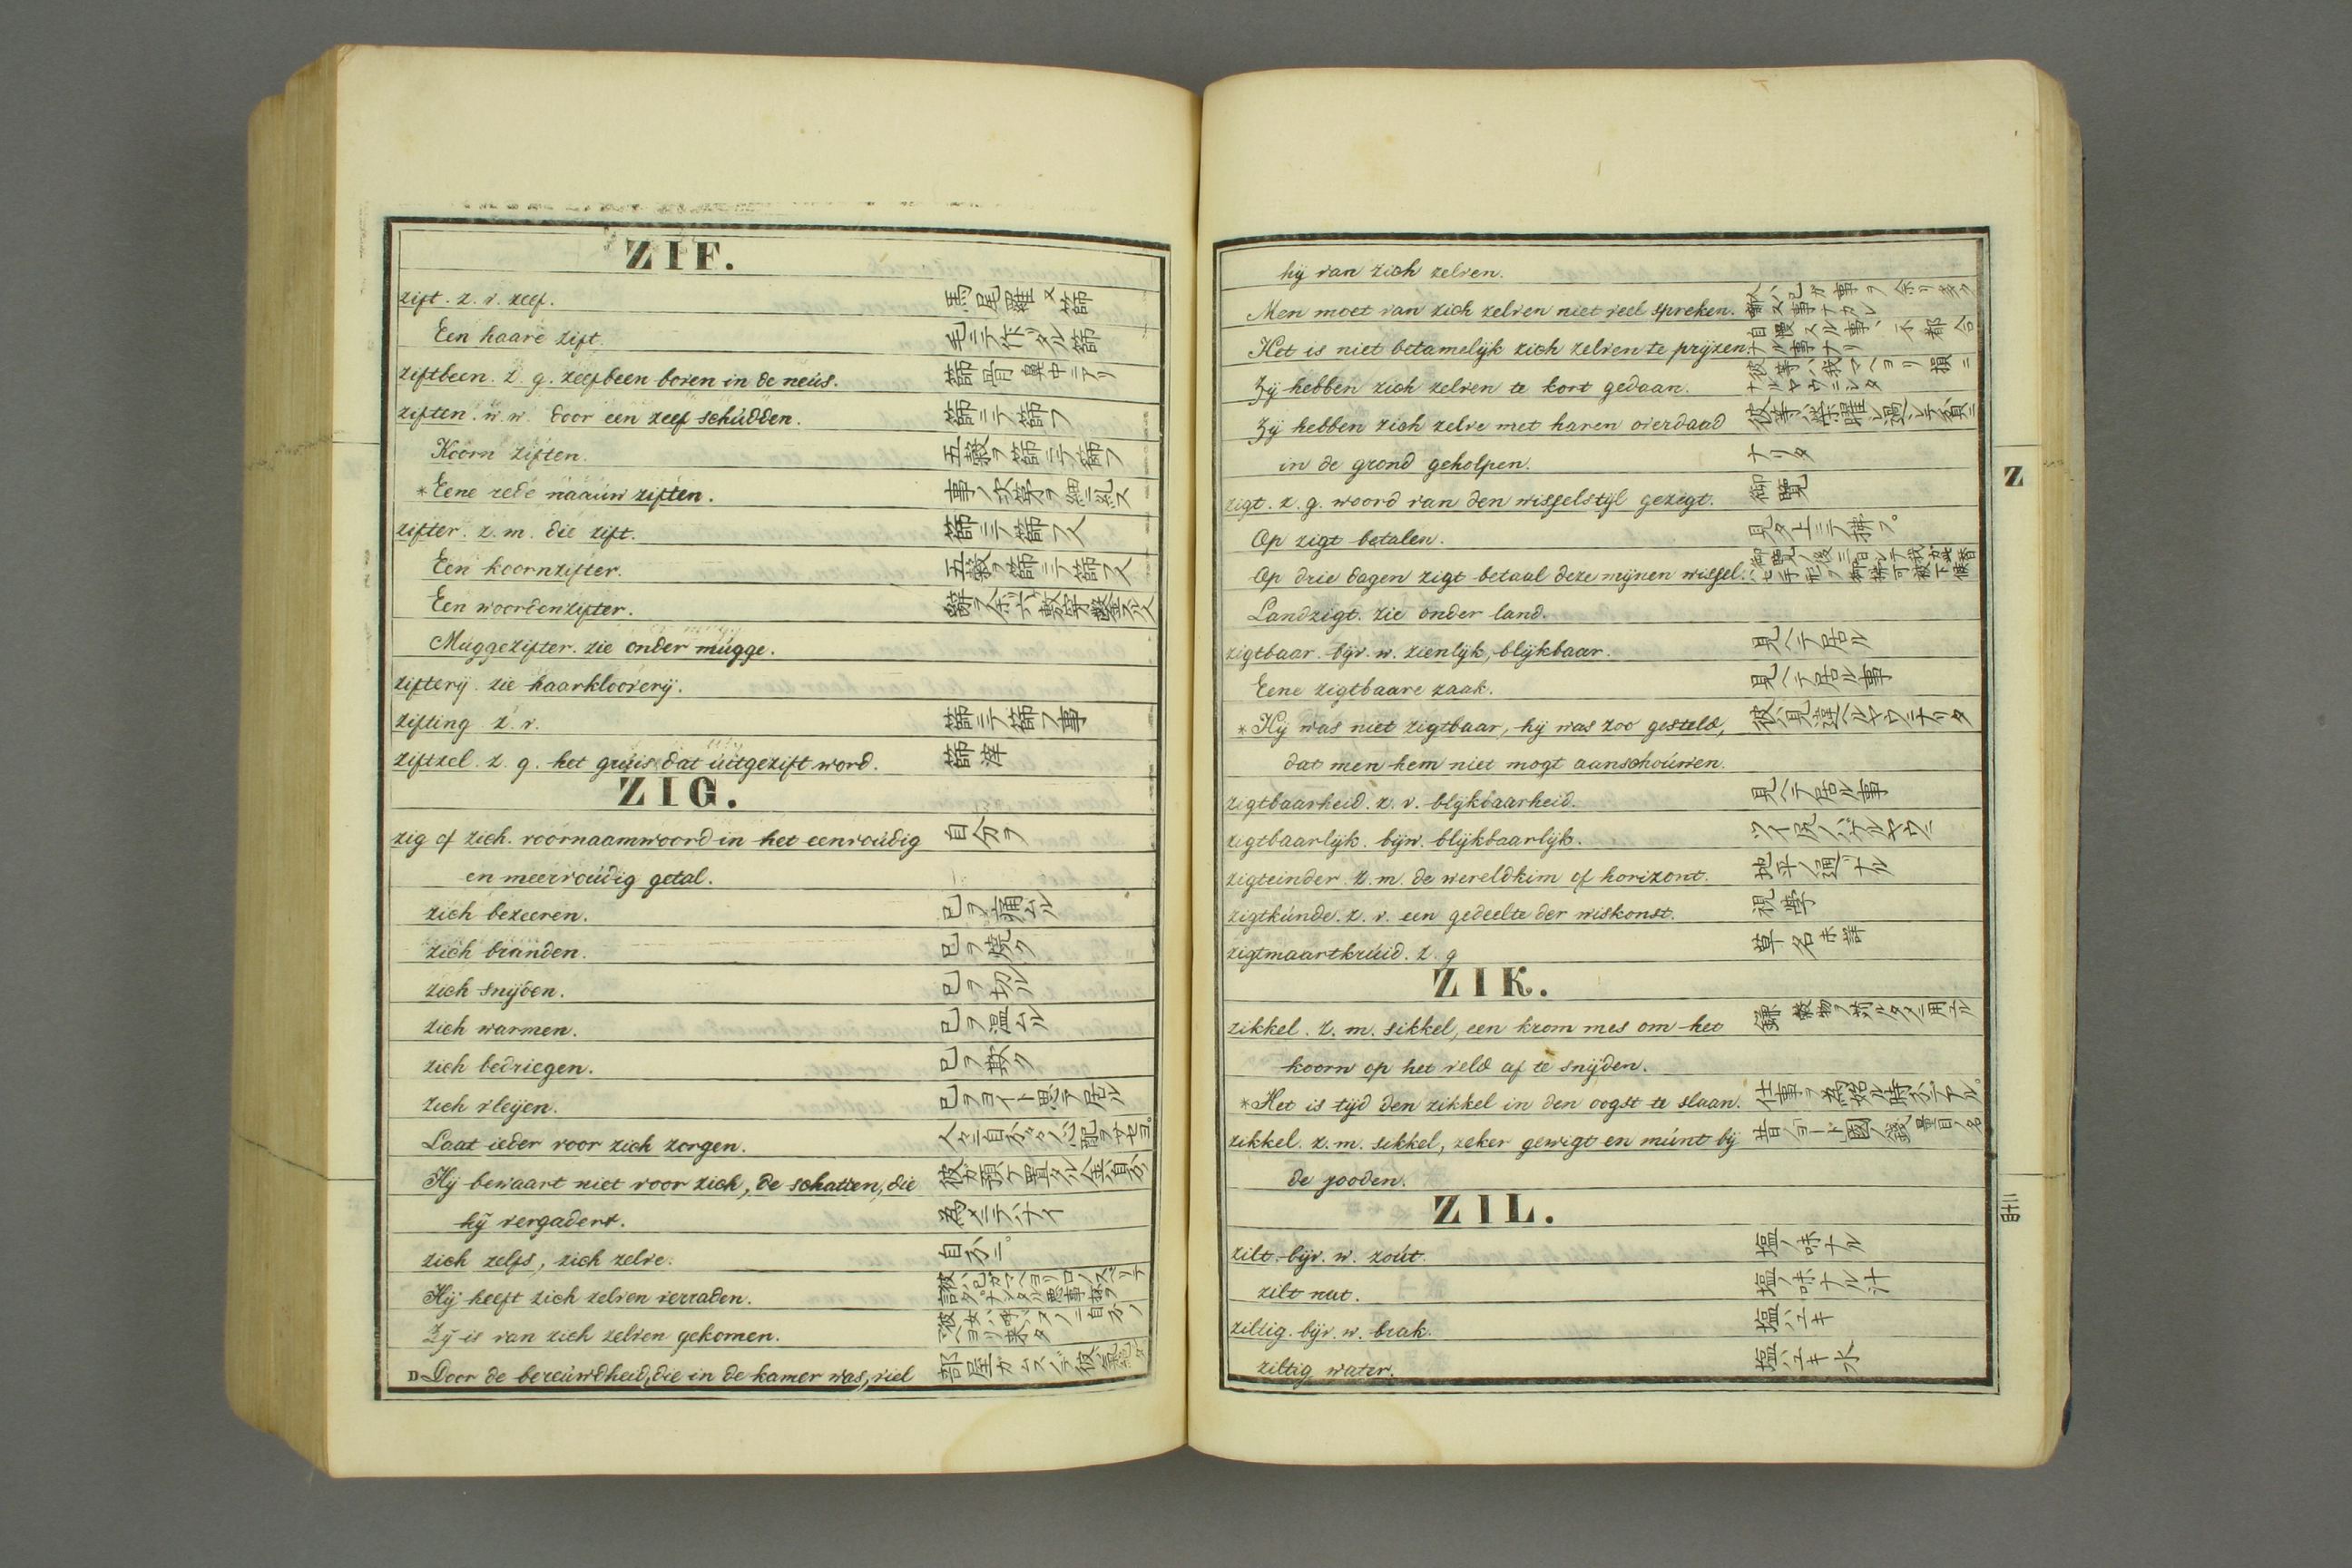 ZIF.
zift. z. v. zeef. 馬尾羅又篩
Een haare zift. 毛ニテ作リタル篩
ziftbeen. z. g. zeefbeen boven in de neus. 篩骨 鼻中ニアリ
ziften. w. w. door een zeef schudden. 篩ニテ篩フ
Koorn ziften. 五穀ヲ篩ニテ篩フ
*Eene rede naauw ziften. 事ノ次第ヲ細ニ糺ス
zifter. z. m. die zift. 篩ニテ篩フ人
Een koornzifter. 五穀ヲ篩ニテ篩フ人
Een woordenzifter.
Muggezifter. zie onder mugge.
zifterij. zie haarklooverij.
zifting z. v. 篩ニテ篩フ事
ziftzel. z. g. het gruis dat uitgezift word. 篩滓
ZIG.
zig of zich. voornaamwoord in het eenvoudig 自分ヲ
en meervoudig getal.
zich bezeeren. 己ヲ痛ムル
zich branden. 己ヲ焼ク
zich snijden. 己ヲ切ル
zich warmen. 己ヲ温ムル
zich bedriegen. 己ヲ欺ク
zich vleijen. 己ヲヨイト思テ居ル
Laat ieder voor zich zorgen. 人々ニ自分々々心配ヲサセヨ。
Hij bewaart niet voor zich, de schatten, die 彼ガ預ケ置タル金ハ自分ノ
hij vergadert. 為メニテハナイ
zich zelfs, zich zelve. 自分ニ。
Hij heeft zich zelven verraden.
Zij is van zich zelven gekomen.
D Door de bereeuwdheid, die in de kamer was, viel
hij van zich zelven.
Men moet van zich zelven niet veel spreken. 人ハ己ガ事ヲ余リ多ク
Het is niet betamelijk zich zelven te prijzen. 自慢スル事ハ不都合ナル事ナリ
Zij hebben zich zelven te kort gedaan. 彼等ハ我マヘヨリ損ニナルヤウニシタ
Zij hebben zich zelve met haren overdaad 彼等ハ榮耀シ過シテ貧ニ
in de grond geholpen. ナリタ
zigt. z. g. woord van den wisselstijl gezigt. 御覧
Op zigt betalen. 見タ上ニテ拂フ。
Op drie dagen zigt betaal deze mijnen wissel.
Landzigt. zie onder land.
zigtbaar. bijv. w. zienlijk, blijkbaar. 見ヘテ居ル
Eene zigtbaare zaak. 見ヘテ居ル事
*Hij was niet zigtbaar, hij was zoo gesteld, 彼ハ見違ヘルヤウニナリタ
dat men hem niet mogt aanschouwen.
zigtbaarheid. z. v. blijkbaarheid. 見ヘテ居ル事
zigtbaarlijk. bijw. blijkbaarlijk.
zigteinder. z. m. de wereldkim of horizont.
zigtkunde. z. v. een gedeelte der wiskonst. 視学
zigtmaartkruid. z. g 草名未詳
ZIK.
zikkel. z. m. sikkel, een krom mes om het 鎌 穀物ヲ苅ルタメニ用フル
koorn op het veld af te snijden.
*Het is tijd den zikkel in den oogst te slaan. 仕事ヲ為始ル時分デアル。
zikkel. z. m. sikkel, zeker gewigt en munt bij 昔ノヨード國ノ錢量目ノ名
de jooden.
ZIL.
zilt. bijv. w. zout. 塩ノ味ナル
zilt nat. 塩ノ味ナル汁
ziltig. bijv. w. brak. 塩ハユキ
ziltig water. 塩ハユキ水
Z